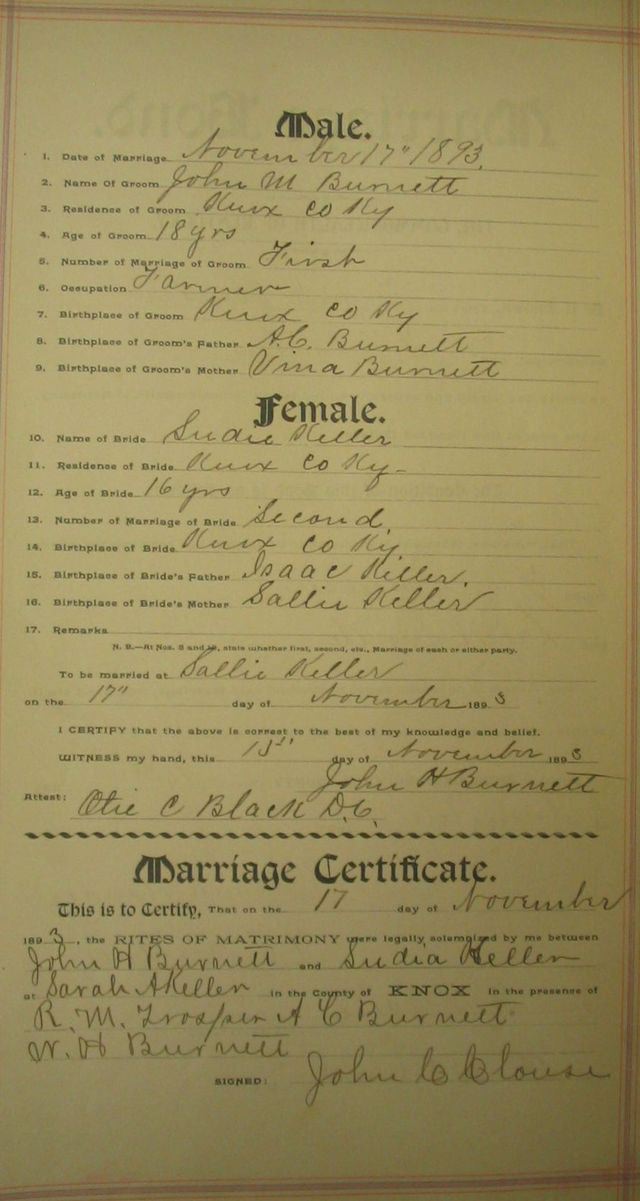 Male.
1. Date of Marriage November 17" 1893.
2. Name Of Groom John M Burnett
3. Residence of Groom Knox Co Ky
4. Age of Groom 18 yrs
5. Number of Marriage of Groom First
6. Occupation Farmer
7. Birthplace of Groom Knox Co Ky
8. Birthplace of Groom's Father A.C. Burnett
9. Birthplace of Groom's Mother Vina Burnett
Female.
10. Name of Bride Sudie Keller
11. Residence of Bride Knox Co Ky-
12. Age of Bride 16 yrs
13. Number of Marriage of Bride Second.
14. Birthplace of Bride Knox Co Ky.
15. Birthplace of Bride's Father Isaac Keller.
16. Birthplace of Bride's Mother Sallie Keller
17. Remarks
N. B.—At Nos. 5 and 13, state whether first, second, etc., Marriage of each or either party.
To be married at Sallie Keller
on the 17" day of November 1893
I CERTIFY that the above is correct to the best of my knowledge and belief.
WITNESS my hand, this day of November 1893
John H Burnett
Attest: Otie C Black D.C.
Marriage Certificate.
This is to Certify, That on the 17 day of November
1893, the RITES OF MATRIMONY were legally solemnized by me between
John H Burnett and Sudia Keller
at Sarah A Keller in the County of KNOX in the presence of
R. M. Trosper A C Burnett
W. H Burnett
SIGNED: John C Clouse